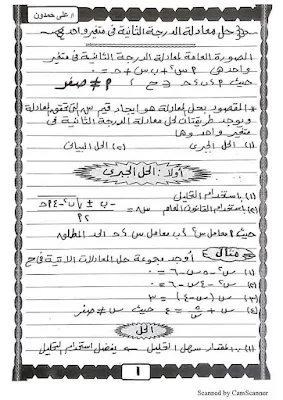 أ/ على حمدون
حل معادلة الدرجة الثانية فى متغير واحد
الصورة العامة لمعادلة الدرجة الثانية فى متغير
واحد هى ٢س٢ + ب س + حـ = ٠
حيث ٢ ≠ صفر
* المقصود بحل المعادلة هو إيجاد قيم س التى تحقق المعادلة
ويوجد طريقتان لحل معادلة الدرجة الثانية فى
متغير واحد وهما
(١) الحل الجبرى (٢) الحل البيانى
أولاً: الحل الجبرى
(١) باستخدام التحليل
(٢) باستخدام القانون العام س =
حيث ٢ معامل س٢ ، ب معامل س ، حـ الحد المطلق
مثال أوجد مجموعة حل المعادلات الآتية فى ح
(١) س٢ - ٥س - ٦ = ٠
(٢) س٢ - ٤س - ٦ = ٠
(٣) س (س - ٤) = ٣
(٤) حيث س ≠ صفر
الحل
(١) المقدار سهل التحليل يفضل استخدام التحليل
١
Scanned by CamScanner